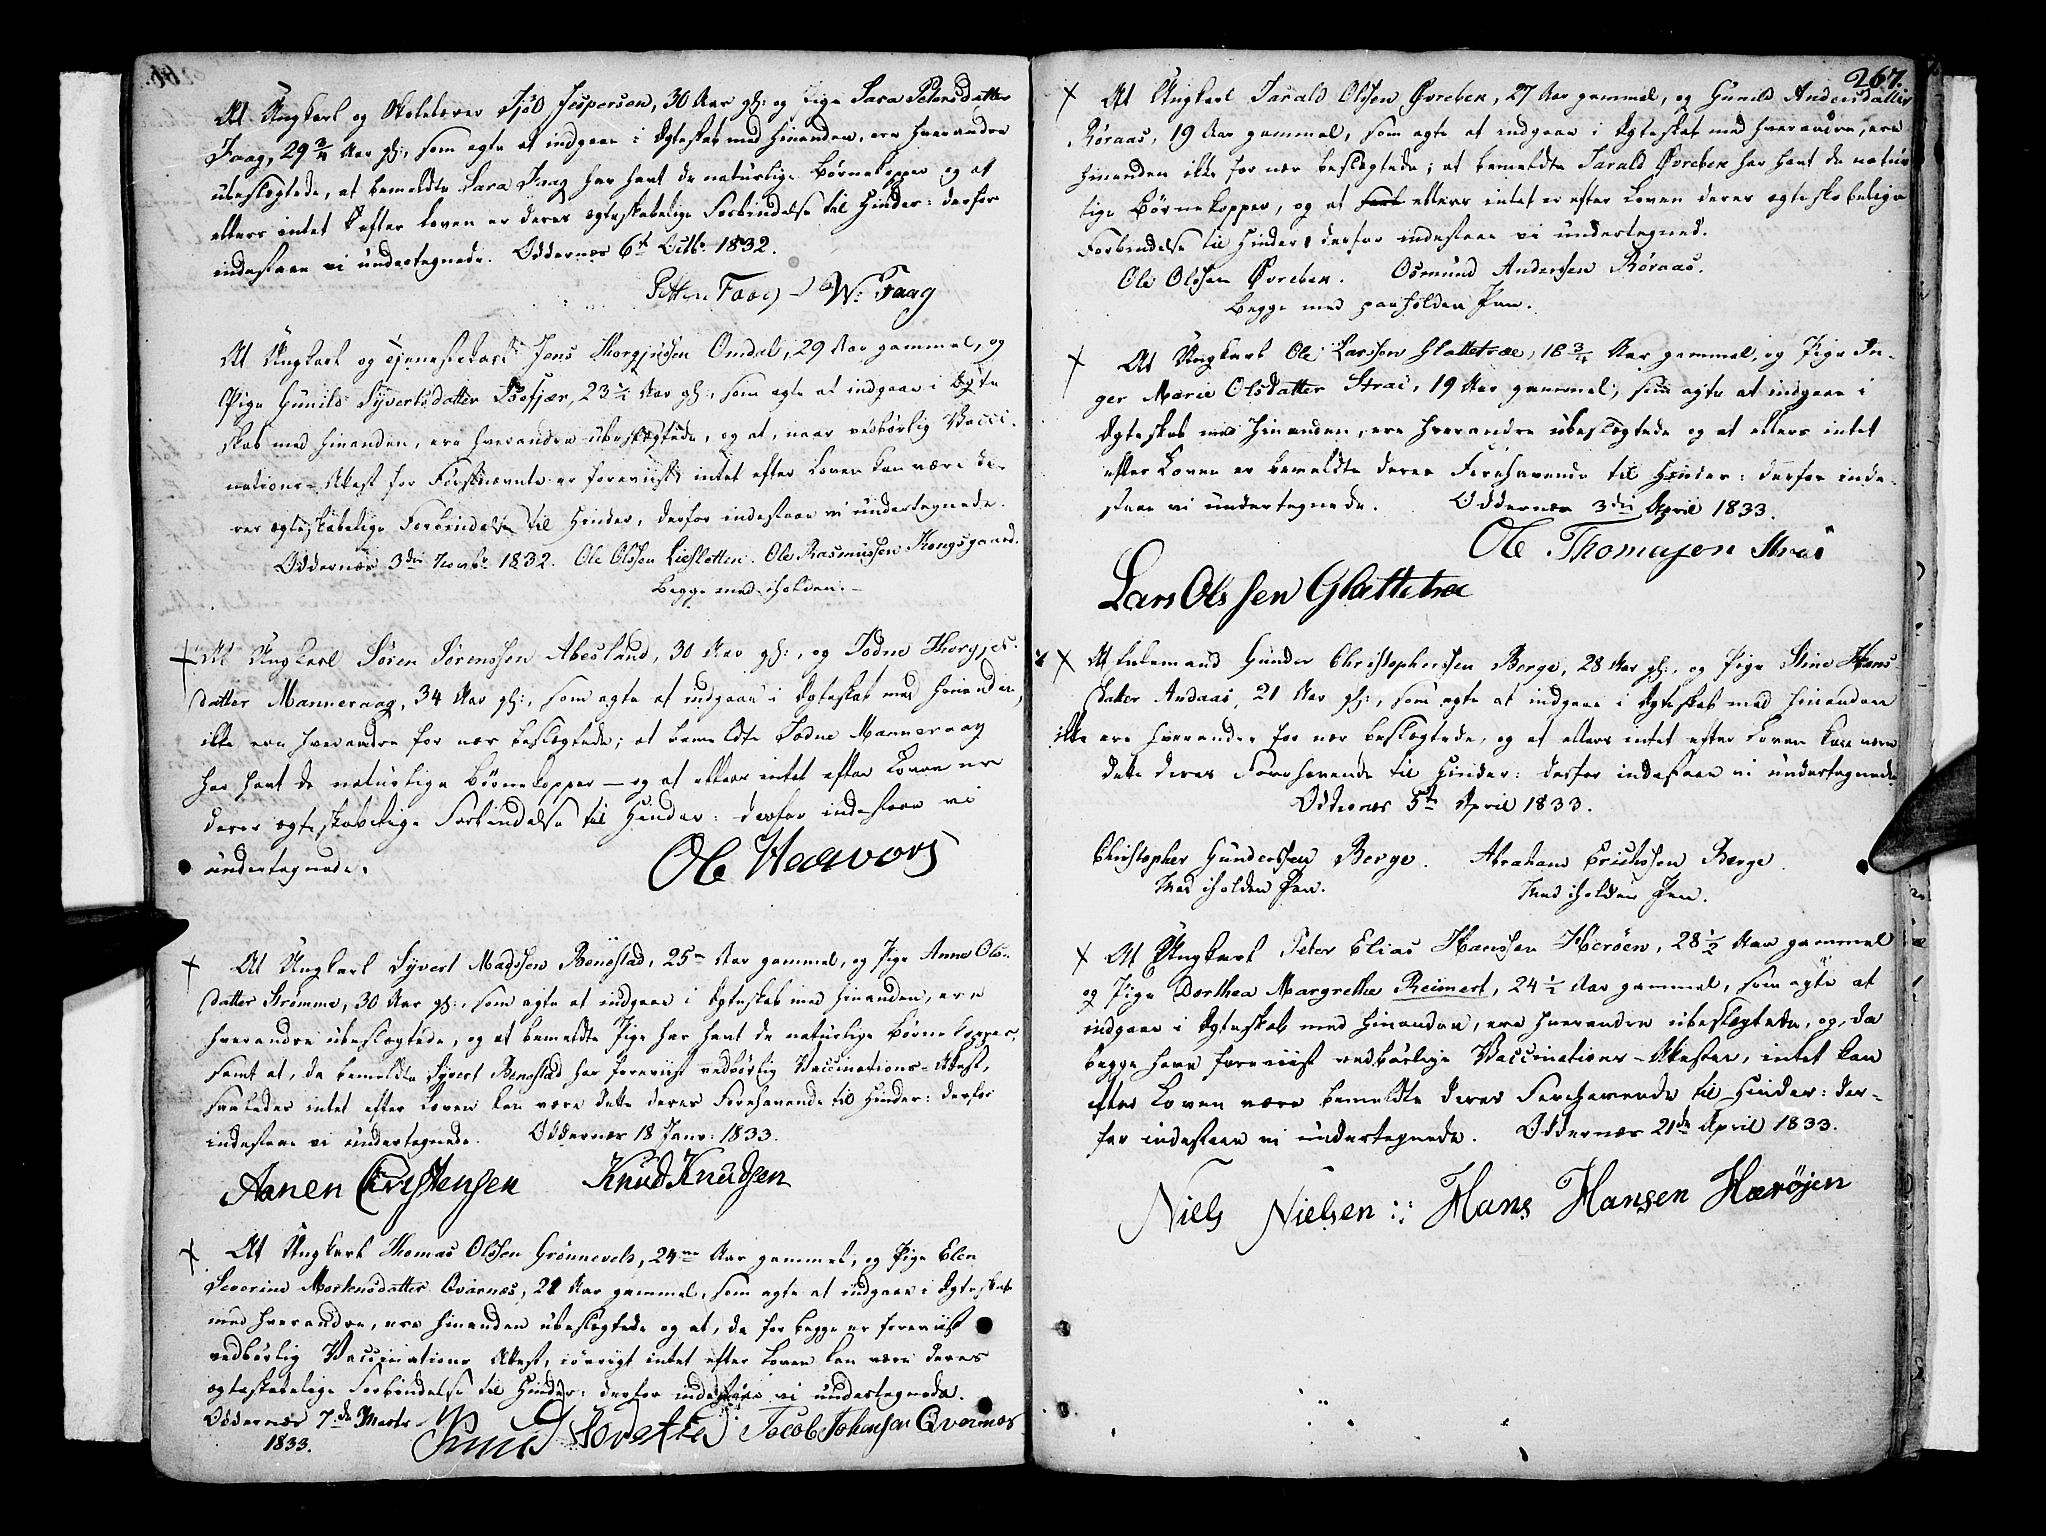 At Ungkarl og Skolelærer Jsöb Jespersen, 30 Aar gl: og Pige Sara Petersdatter
Faag, 29 3/4 Aar gl:, som agte at indgaae i Ægteskab med hinanden, ere hverandre
ubeslægtede, at bemeldte Sara Faag har havt de naturlige Børnekopper og at
ellers intet efter Loven er deres ægteskabelige Forbindelse til Hinder: derfor
indestaae vi undertegnede. Oddernæs 6t Octbr 1832.
Petter Faag W: Faag
At Ungkarl og Tjenestekarl Jens Thorgjusen Omdal, 29 Aar gammel, og
Pige Gunild Syvertsdatter Bosfjær, 23 1/2 Aar gl:, som agte at indgaae i Ægte
skab med hinanden, ere hverandre ubeslægtede, og at, naar vedbørlig Vacci-
nations-Attest for Førstnævnte er foreviist, intet efter Loven kan være de-
res ægteskabelige Forbindelse til Hinder, derfor indestaae vi undertegnede.
Oddernæs 3die Novbr 1832. Ole Olssen Liesletten. Ole Rasmussen Kongsgaard.
Begge med iholden.
At Ungkarl Søren Sørenssen Abesland, 30 Aar gl:, og Todne Thorgjes-
datter Manneraag, 34 Aar gl:, som agte at indgaae i Ægteskab med hinanden,
ikke ere hverandre for nær beslægtede; at bemeldte Todne Manneraag
har havt de naturlige Børnekopper — og at ellers intet efter Loven er
deres ægteskabelige Forbindelse til Hinder: derfor indestaae vi
undertegnede. Ole Haavors
At Ungkarl Syvert Madssen Benestad, 25 Aar gammel, og Pige Anne Ols-
datter Strømme, 30 Aar gl:, som agte at indgaae i Ægteskab med hinanden, ere
hverandre ubeslægtede, og at bemeldte Pige har havt de naturlige Børnekopper,
samt at, da bemeldte Syvert Benestad har foreviist vedbørlig Vaccinations-Attest,
saaledes intet efter Loven kan være dette deres Forehavende til Hinder: derfor
indestaae vi undertegnede. Oddernæs 18 Janr: 1833.
Aanen Cristensen Knud Knudsen
At Ungkarl Thomas Olssen Grønnevold, 24 Aar gammel, og Pige Elen
Severine Mortensdatter Qvarnes, 21 Aar gammel, som agte at indgaae i Ægteskab
med hverandre, ere hinanden ubeslægtede og at, da for begge er foreviist
vedbørlig Vaccinations Attest, iøvrigt intet efter Loven kan være deres
ægteskabelige Forbindelse til Hinder: derfor indestaae vi undertegnede.
Oddernæs 7de Marts
1833. Jacob Johansen Qvernæs
267.
At Ungkarl Tarald Olssen Øvrebek, 27 Aar gammel, og Gunild Andersdatter
Røraas, 19 Aar gammel, som agte at indgaae i Ægteskab med hverandre, ere
hinanden ikke for nær beslægtede; at bemeldte Tarald Øvrebek har havt de natur-
lige Børnekopper, og at ellers intet er efter Loven deres ægteskabelige
Forbindelse til Hinder, derfor indestaae vi undertegned.
Ole Olssen Øvrebek. Osmund Anderssen Røraas.
Begge med paaholden Pen.
At Ungkarl Ole Larssen Glattetræe, 18 3/4 Aar gammel, og Pige In-
ger Marie Olsdatter Strai, 19 Aar gammel, som agte at indgaae i
Ægteskab med hinanden, ere hverandre ubeslægtede og at ellers intet
efter Loven er bemeldte deres Forehavende til Hinder: derfor inde-
staae vi undertegnede. Oddernæs 3die April 1833.
Ole Thomasen Strai
Lars Olssen Glattetræ
At Enkemand Gunder Christophersen Berge, 28 Aar gl:, og Pige Stine Hans
datter Andaas, 21 Aar gl:, som agte at indgaae i Ægteskab med hinanden
ikke ere hverandre for nær beslægtede, og at ellers intet efter Loven kan være
dette deres Forehavende til Hinder: derfor indestaae vi undertegnede
Oddernæs 5te April 1833.
Christopher Gunderssen Berge. Abraham Erichssen Berge.
Med iholden Pen. Med iholden Pen.
At Ungkarl Peter Elias Hanssen Herøen, 28 1/2 Aar gammel
og Pige Dorthea Margrethe Reimert, 24 1/2 Aar gammel, som agte at
indgaae i Ægteskab med hinanden, ere hverandre ubeslægtede, og, da
begge have foreviist vedbørlige Vaccinations-Attester, intet kan
efter Loven være bemeldte deres Forehavende til Hinder: der-
for indestaae vi undertegnede. Oddernæs 21de April 1833.
Niels Nielsen :: Hans Hansen Hærøjen